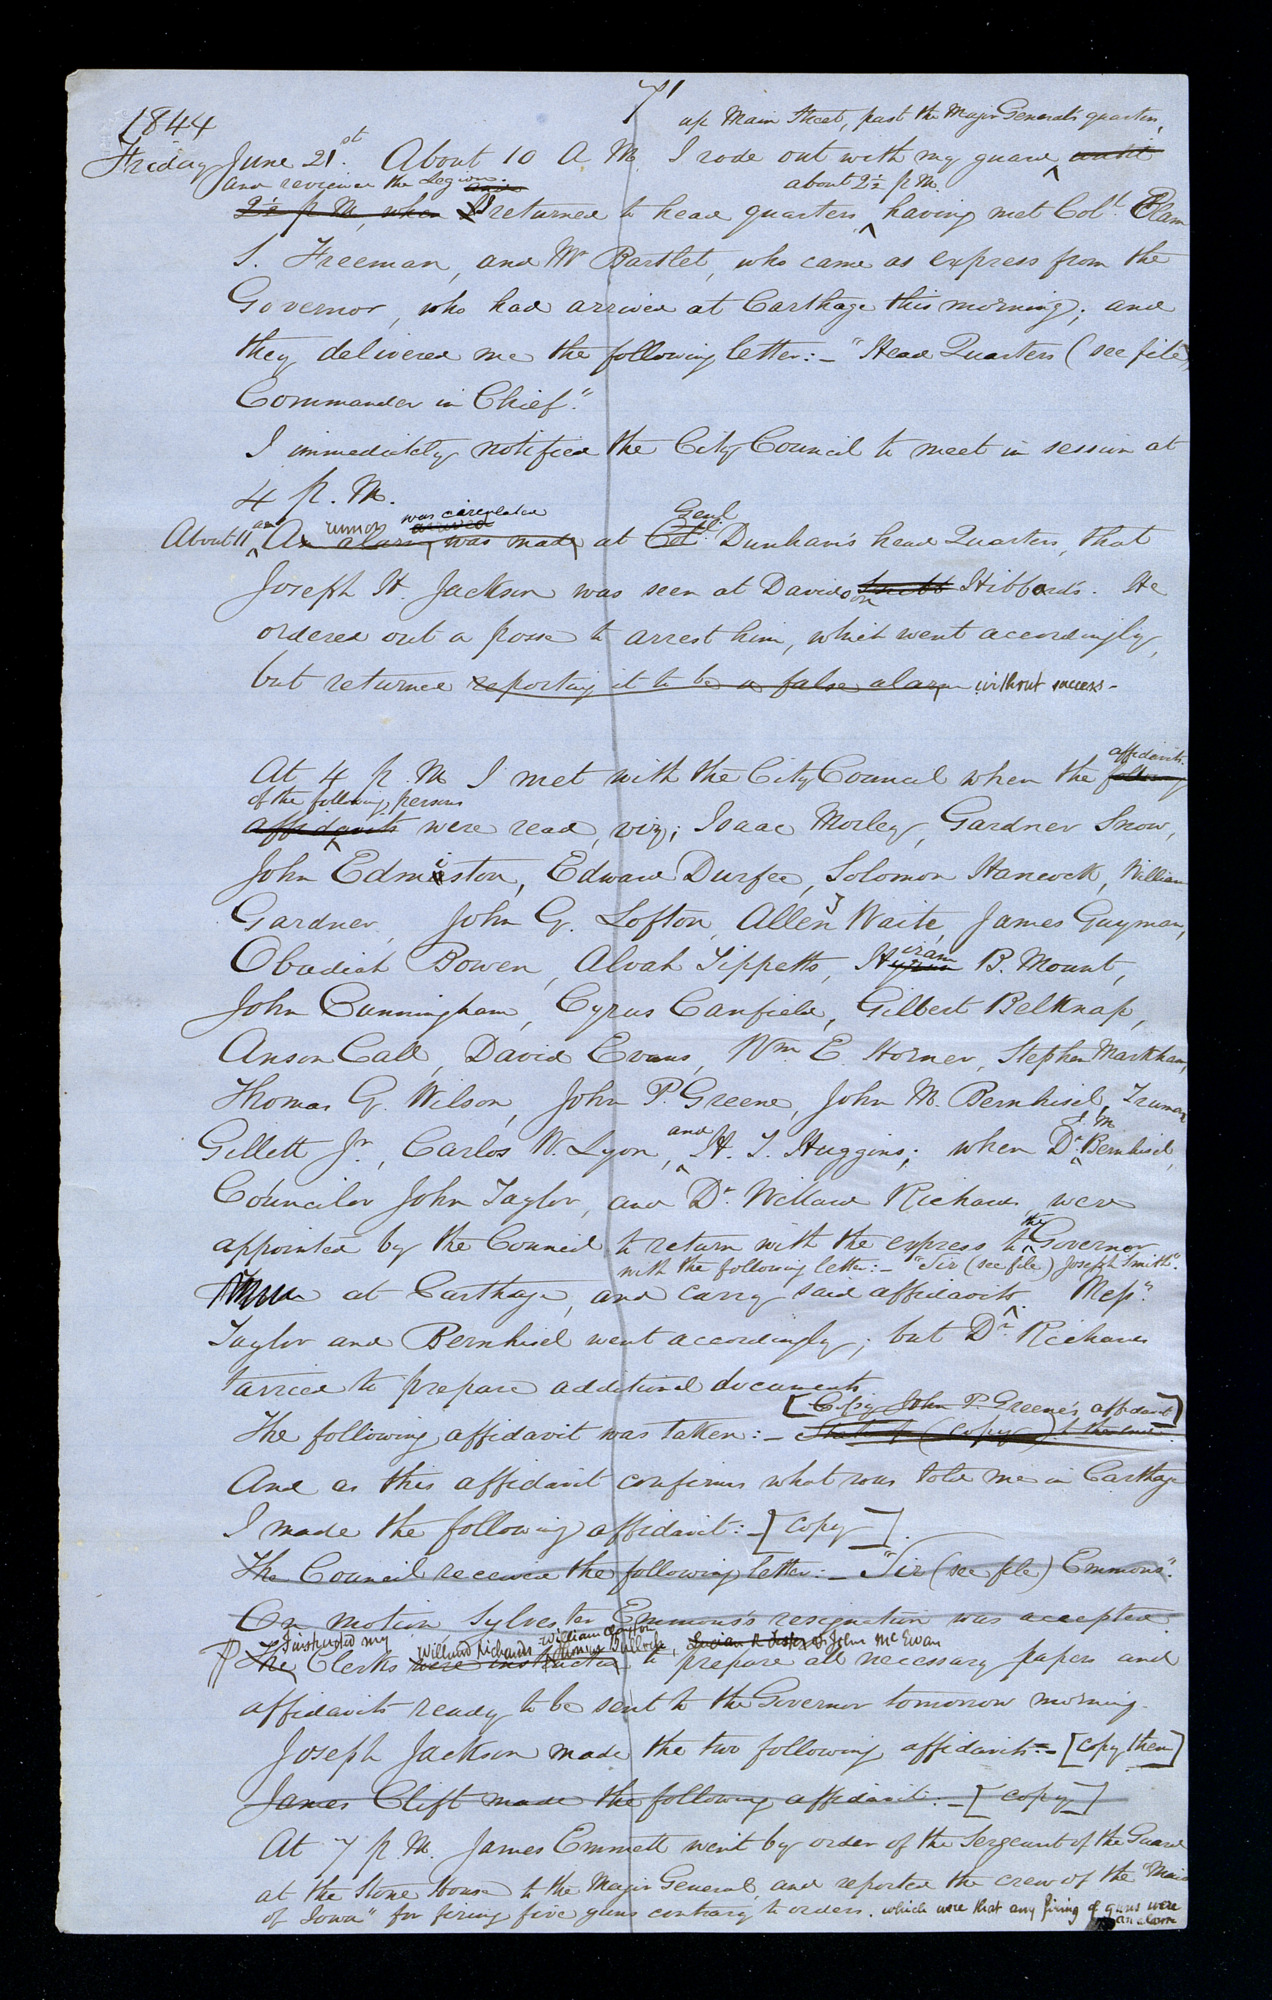 71
1844
up Main Street, past the Major General's quarters,
Friday June 21st. About 10 A M. I rode out with my guard until
and reviewed the Legion. and about 2½ p M.
2½ p M, when I returned to head quarters, having met Col. Elam
S. Freeman, and Mr Bartlet, who came as express from the
Governor, who had arrived at Carthage this morning; and
they delivered me the following letter:— "Head Quarters (see file)
Commander in Chief."
I immediately notified the City Council to meet in session at
4 p. M.
am rumor was circulated arrived Genl.
About 11 An alarm, was made, at Col. Dunham's head Quarters, that
Joseph H. Jackson was seen at Davidson Hibbard's. He
ordered out a posse to arrest him, which went accordingly,
but returned reporting it to be a false alarm without success—
affidavits
At 4 p. M I met with the City Council when the following
of the following persons
affidavits were read, viz; Isaac Morley, Gardner Snow,
John Edmiston, Edward Durfee, Solomon Hancock, William
Gardner, John G. Lofton, Allen Waite, James Guyman,
iram
Obadiah Bowen, Alvah Tippetts, Hyrum B. Mount,
John Cunningham, Cyrus Canfield, Gilbert Belknap,
Anson Call, David Evans, Wm. E. Horner, Stephen Markham,
Thomas G. Wilson, John P. Greene, John M. Bernhisel, Truman
and J. M.
Gillett Jr., Carlos W. Lyon, H. T. Huggins; when Dr. Bernhisel,
Councilor John Taylor, and Dr. Willard Richards, were
the
appointed by the Council to return with the express to Governor
with the following letter:— "Sir (see file) Joseph Smith".
at Carthage, and carry said affidavits. Messrs.
Taylor and Bernhisel went accordingly; but Dr. Richards
tarried to prepare additional documents
[Copy John P. Greene's affidavit]
The following affidavit was taken:— State of (copy)
And as this affidavit confirms what was told me in Carthage
I made the following affidavit:— [copy].
The Council received the following letter:— "Sir (see file) Emmons".
On motion Sylvester Emmons's resignation was accepted.
I instructed my Willard Richards William Clayton Thomas Bullock, & John McEwan
The Clerks were instructed to prepare all necessary papers and
affidavits ready to be sent to the Governor tomorrow morning.
Joseph Jackson made the two following affidavits:— [copy them]
James Clift made the following affidavit:— [copy]
At 7 p. M. James Emmett went by order of the Sergeant of the Guard
at the Stone House to the Major General, and reported the crew of the "Maid
of Iowa" for firing five guns contrary to orders. which were that any firing of guns were
an alarm